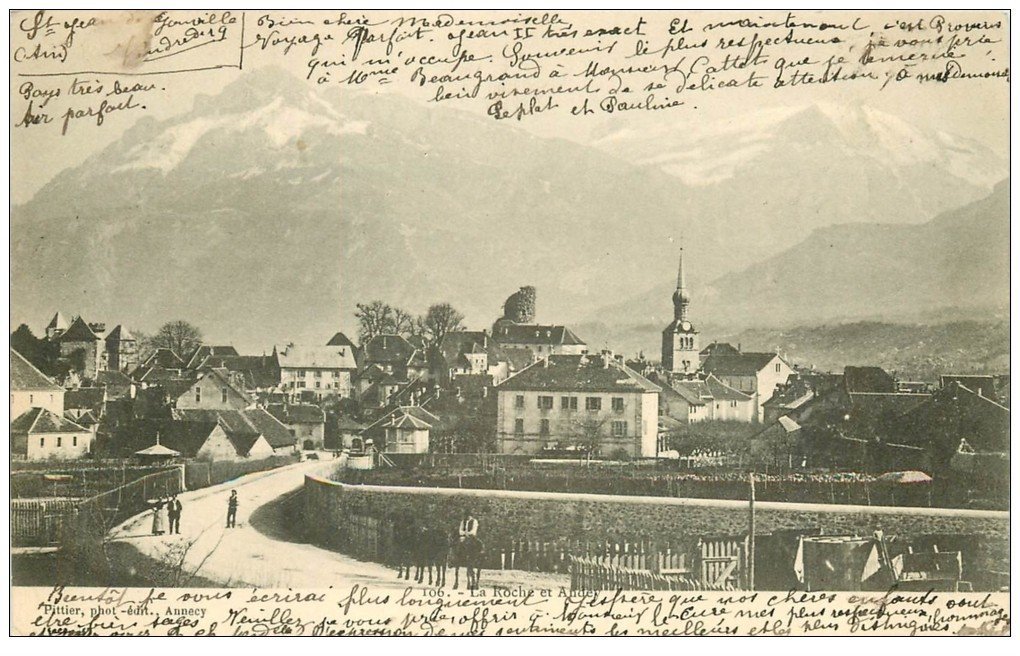 St Jean de Gonville
(Ain) Vendredi 9
Pays très beau.
Air parfait.
Bien chère Mademoiselle,
Voyage Parfait. Jean II très exact Et maintenant, c'est Provers
qui m'occupe. Souvenir le plus respectueux, je vous prie
à Mme Beaugrand à Monsieur Cattet que je remercie
bien vivement de se delicate attention, à mademoiselle
Leplat et Pauline.
106. - La Roche et Andey
Pittier, phot.-édit., Annecy
Bientôt je vous écrirai plus longuement J'espère que nos chères enfants sont
être bien sages Veuillez je vous prie, offrir à Monsieur le Curé mes plus respectueux hommages
l'expression de mes sentiments les meilleurs et les plus distingués.